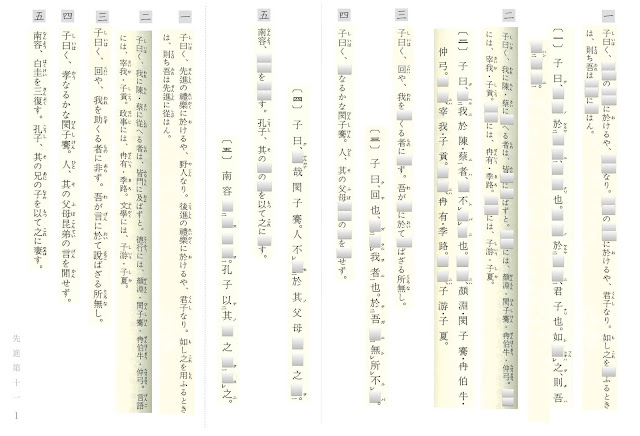 一
子曰く、 の に於けるや、 なり。 の に於けるや、君子なり。如し之を ふるとき
は、則ち吾は に はん。
〔一〕子曰、 於 、 也。 於 、君子也。如 之、則吾
。
二
子曰く、我に陳・蔡に へる者は、皆 に ばずと。 には、顔淵・閔子騫・冉伯牛・仲弓。
には、宰我・子貢。 には、冉有・季路。 には、子游・子夏。
〔二〕子曰、 我於陳・蔡者、不 也。 顔淵・閔子騫・冉伯牛・
仲弓。 宰我・子貢。 冉有・季路。 子游・子夏。
三
子曰く、回や、我を くる者に ず。吾が に於て ばざる所無し。
〔三〕子曰、回也、 我者也。於吾 無所不 。
四
子曰く、 なるかな閔子騫。人、其の父母 の を せず。
〔四〕子曰、 哉閔子騫。人不 於其父母 之 。
五
南容、 を す。孔子、其の の を以て之に す。
〔五〕南容 。孔子以其 之 之。
一
子曰く、先進の禮樂に於けるや、野人なり。後進の禮樂に於けるや、君子なり。如し之を用ふるとき
は、則ち吾は先進に從はん。
二
子曰く、我に陳・蔡に從へる者は、皆門に及ばずと。德行には、顔淵・閔子騫・冉伯牛・仲弓。言語
には、宰我・子貢。政事には、冉有・季路。文學には、子游・子夏。
三
子曰く、回や、我を助くる者に非ず。吾が言に於て說ばざる所無し。
四
子曰く、孝なるかな閔子騫。人、其の父母昆弟の言を間せず。
五
南容、白圭を三復す。孔子、其の兄の子を以て之に妻す。
先進第十一 1